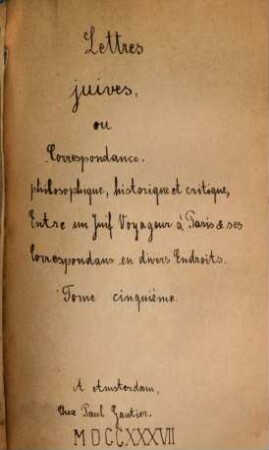 Lettres
juives,
ou
Correspondance.
philosophique, historique et critique,
Entre un Juif Voyageur à Paris & ses
Correspondans en divers Endroits.
Tome cinquième.
A Amsterdam,
Chez Paul Gautier.
MDCCXXXVII